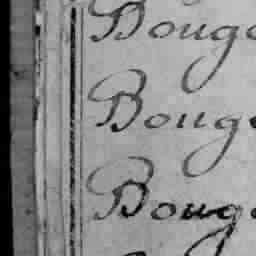 Bouge
Bouge
Bouge